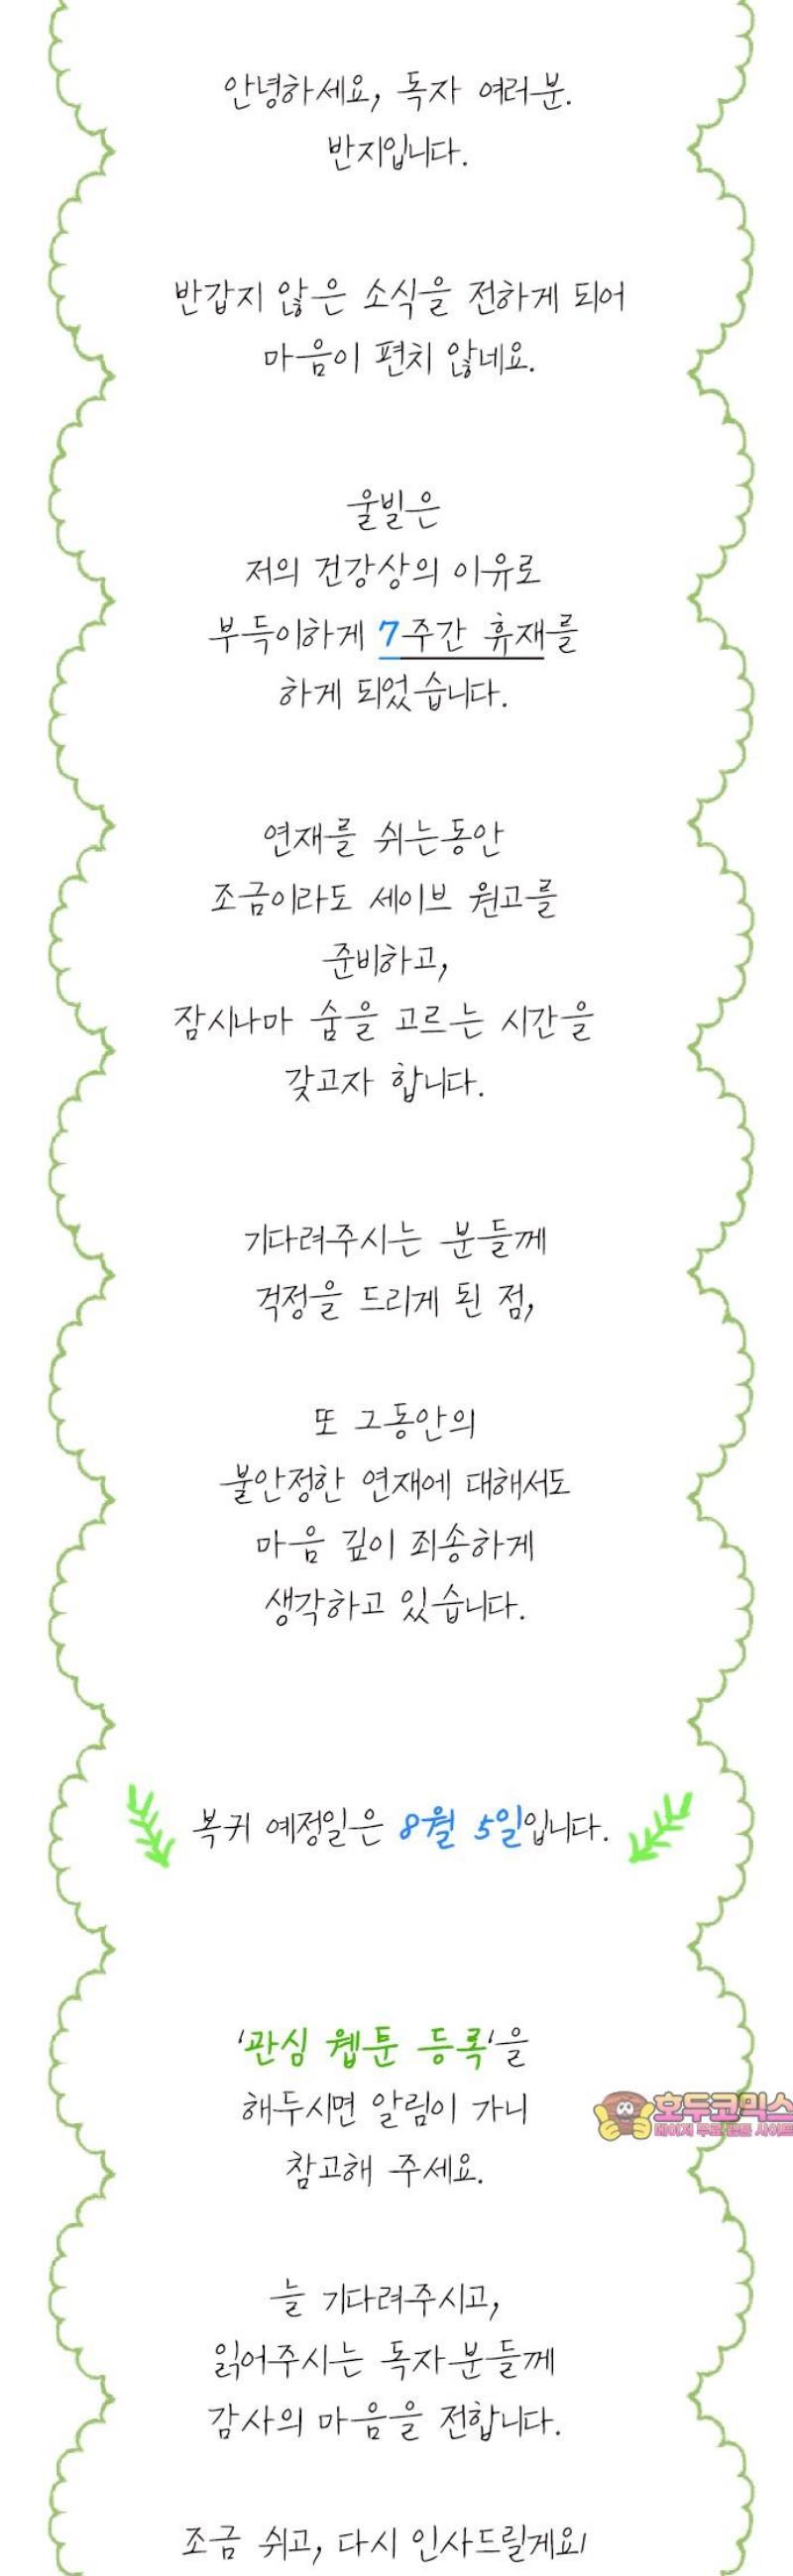 안녕하세요, 독자 여러분.
반지입니다.
반갑지 않은 소식을 전하게 되어
마음이 편치 않네요.
울빌은
저의 건강상의 이유로
부득이하게 7주간 휴재를
하게 되었습니다.
연재를 쉬는동안
조금이라도 세이브 원고를
준비하고,
잠시나마 숨을 고르는 시간을
갖고자 합니다.
기다려주시는 분들께
걱정을 드리게 된 점,
또 그동안의
불안정한 연재에 대해서도
마음 깊이 죄송하게
생각하고 있습니다.
복귀 예정일은 8월 5일입니다.
'관심 웹툰 등록'을
해두시면 알림이 가니
참고해 주세요.
호두코믹스
메이저 무료웹툰 사이트
늘 기다려주시고,
읽어주시는 독자분들께
감사의 마음을 전합니다.
조금 쉬고, 다시 인사드릴게요!